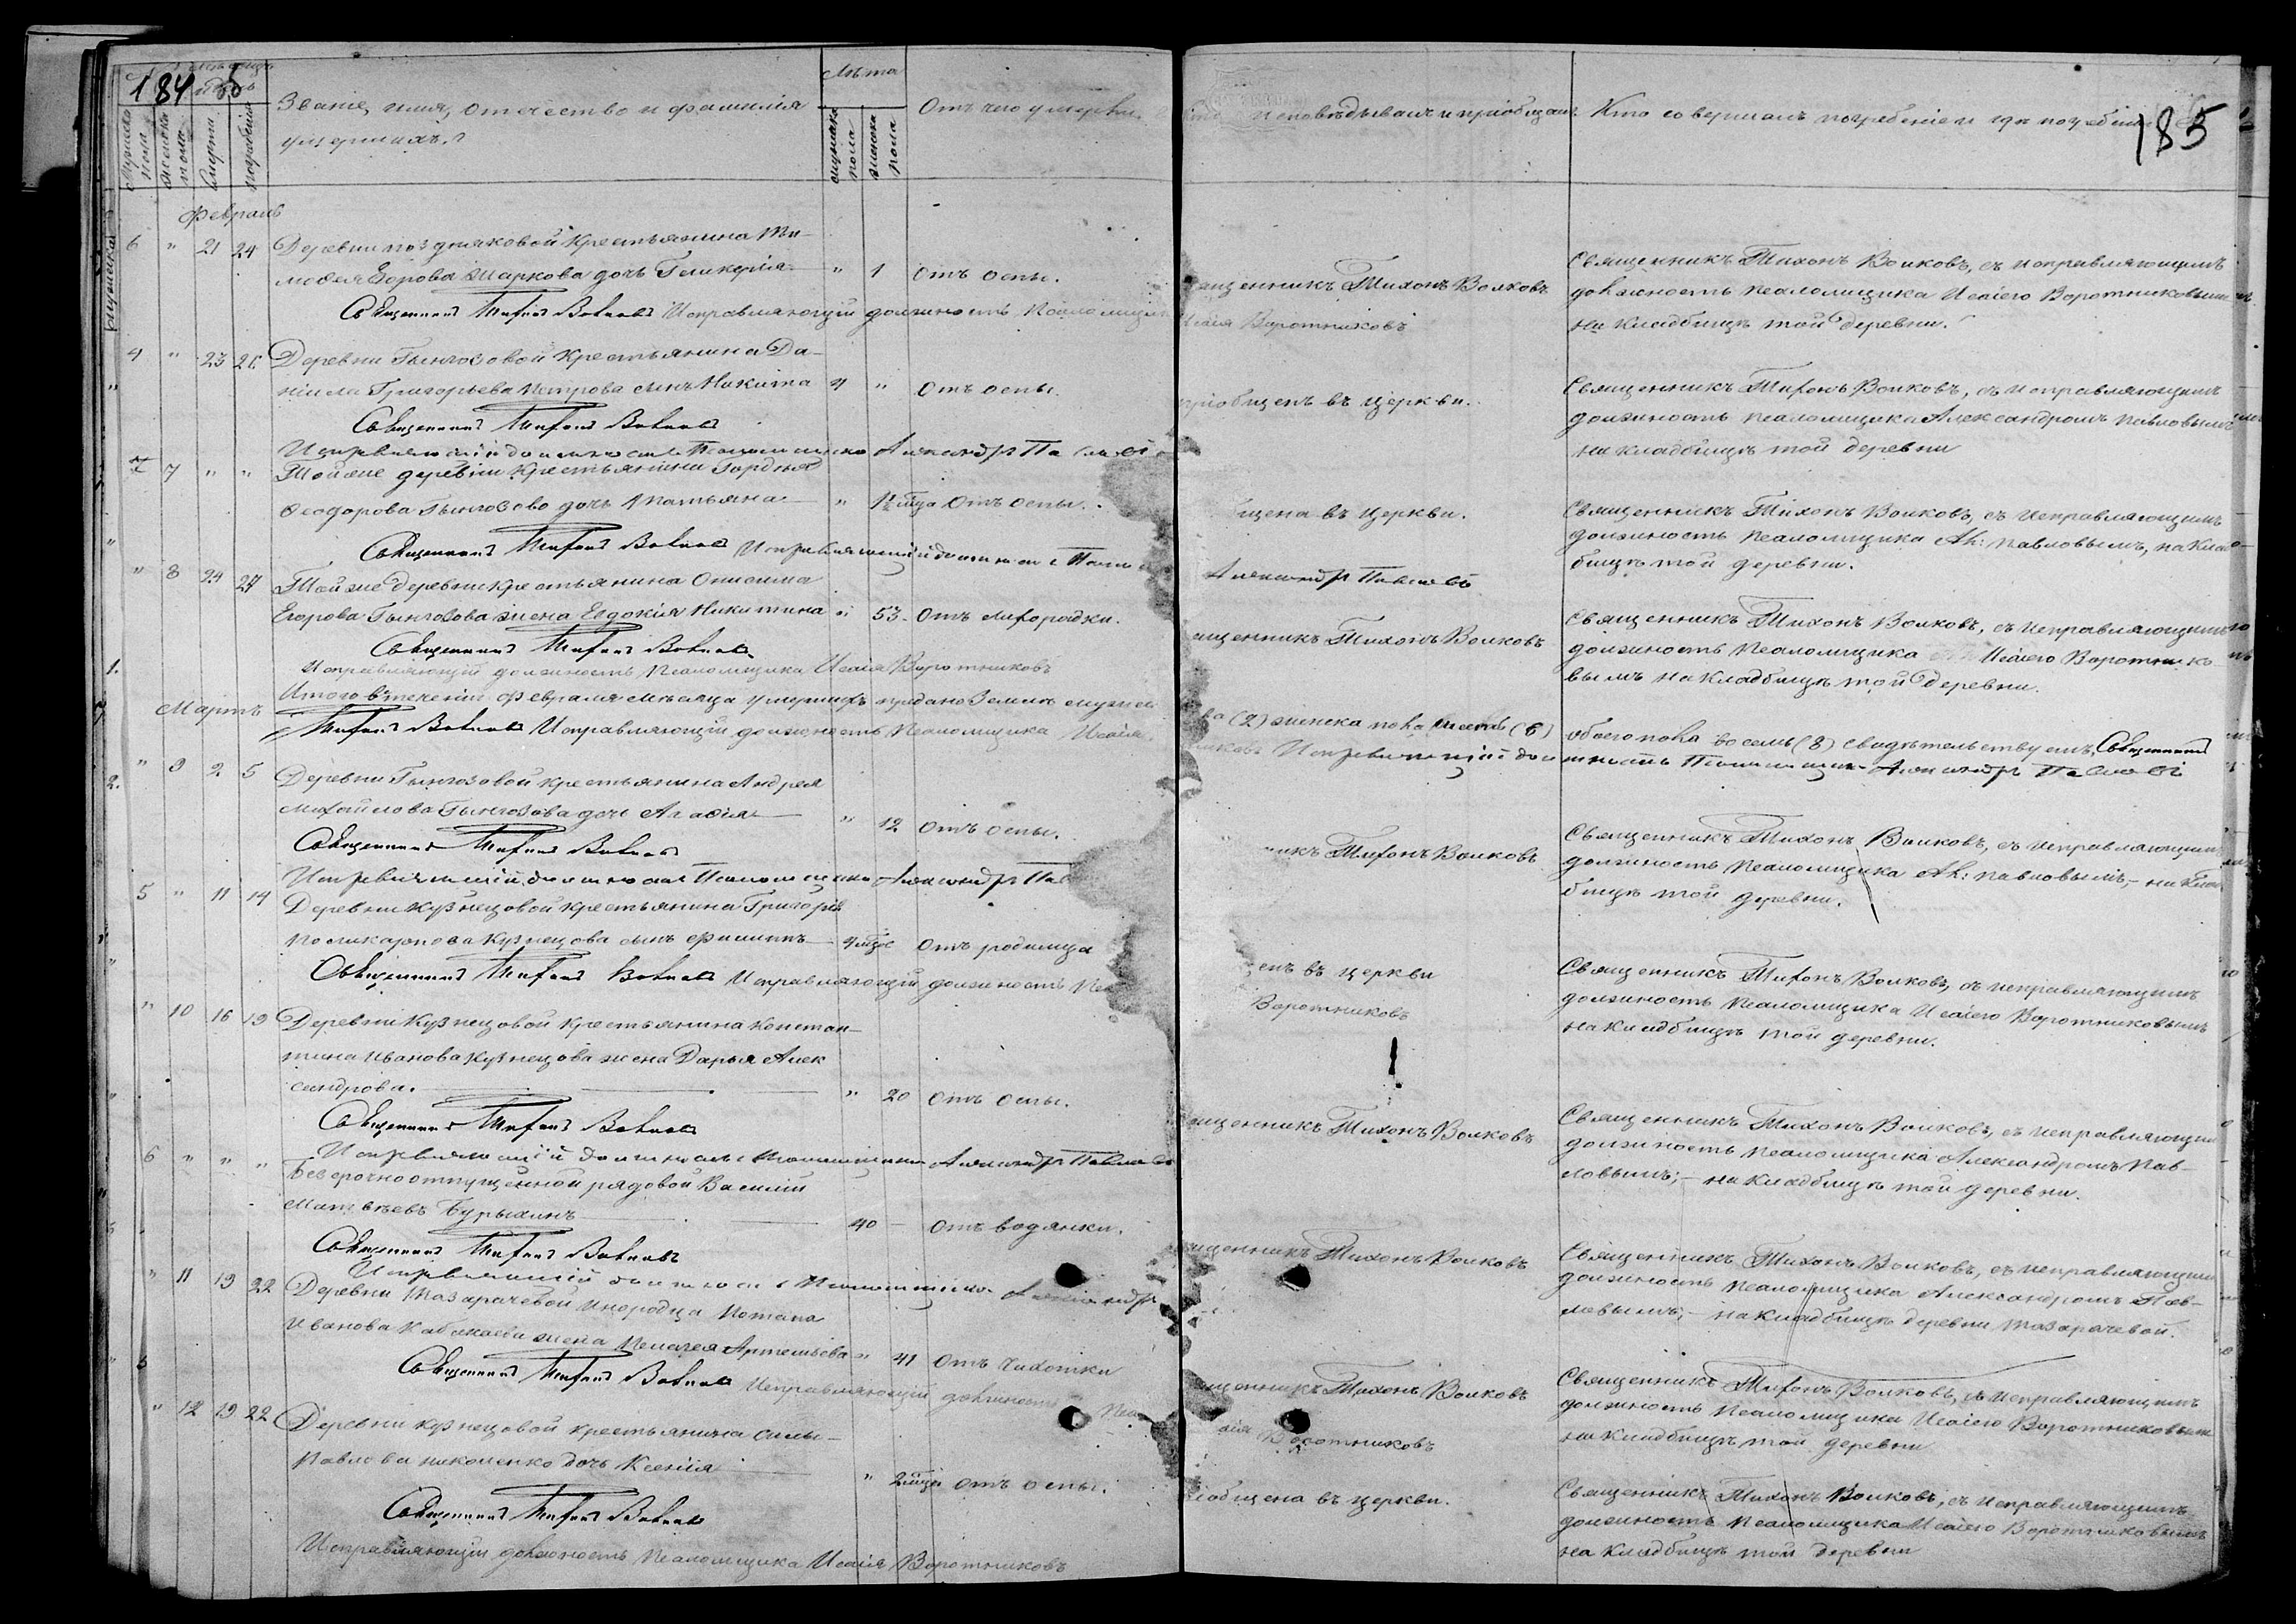 184 об
185
Мѣсяцъ
день
Лѣта
Мужска пола
Женска пола
смерти
погребенія
Званіе, имя, отечество и фамилія
умершихъ.
мужска пола
женска пола
Отъ чего умерли
исповѣдывалъ и пріобщалъ
Кто совершалъ погребеніе и гдѣ погребены
Февраль
6 " 21 24 Деревни Поздняковой крестьянина Ти-
моѳея Егорова Маркова дочь Гликерія " 1 Отъ оспы.
Священникъ Тихонъ Волковъ
Священникъ Тихонъ Волковъ, съ исправляющимъ
должность псаломщика Исаіею Воротниковымъ
на кладбищѣ той деревни.
Священникъ Тихонъ Волковъ Исправляющій должность Псаломщика Исаія Воротниковъ
4 " 23 26 Деревни Гынгозовой крестьянина Да-
ніила Григорьева Петрова сынъ Никита 4 " Отъ оспы.
пріобщенъ въ церкви.
Священникъ Тихонъ Волковъ, съ исправляющимъ
должность псаломщика Александромъ Павловымъ
на кладбищѣ той деревни
Священникъ Тихонъ Волковъ
Исправляющій должность Псаломщика Александръ Павловъ
7 " " Той же деревни крестьянина Гордѣя
Ѳеодорова Гынгозова дочь Татьяна " Отъ оспы.
щена въ церкви.
Священникъ Тихонъ Волковъ, съ исправляющимъ
должность псаломщика Ал: Павловымъ, на клад-
бищѣ той деревни.
Священникъ Тихонъ Волковъ Исправляющій должность Псаломщика
Александръ Павловъ
" 8 24 27 Той же деревни крестьянина Онисима
Егорова Гынгозова жена Евдокія Никитина " 53. Отъ лихорадки.
Священникъ Тихонъ Волковъ
Священникъ Тихонъ Волковъ, съ исправляющимъ
должность псаломщика Исаіею Воротнико-
вымъ на кладбищѣ той деревни.
Священникъ Тихонъ Волковъ
Исправляющій должность Псаломщика Исаія Воротниковъ
Итого въ теченіи Февраля мѣсяца умершихъ предано землѣ мужск
ва (2) женска пола шесть (6) обоего пола восемь (8) свидѣтельствуемъ, Священникъ
Тихонъ Волковъ Исправляющій должность Псаломщика Исаія
никовъ Исправляющій должность Псаломщика Александръ Павловъ
Мартъ
" 9 2 5 Деревни Гынгозовой крестьянина Андрея
Михайлова Гынгозова дочь Агаѳія " 12 Отъ оспы.
никъ Тихонъ Волковъ
Священникъ Тихонъ Волковъ, съ исправляющимъ
должность псаломщика Ал: Павловымъ,- на клад-
бищѣ той деревни.
Священникъ Тихонъ Волковъ
Исправляющій должность Псаломщика Александръ Пав
5 " 11 14 Деревни Кузнецовой крестьянина Григорія
Поликарпова Кузнецова сынъ Филиппъ Отъ родимца
енъ въ церкви
Священникъ Тихонъ Волковъ, съ исправляющимъ
должность псаломщика Исаіею Воротниковымъ
на кладбищѣ той деревни.
Священникъ Тихонъ Волковъ Исправляющій должность Пса
Воротниковъ
" 10 16 19 Деревни Кузнецовой крестьянина Констан-
тина Иванова Кузнецова жена Дарья Алек
сандрова. " 20 Отъ оспы.
Священникъ Тихонъ Волковъ
Священникъ Тихонъ Волковъ, съ исправляющимъ
должность псаломщика Александромъ Пав-
ловымъ;- на кладбищѣ той деревни.
Священникъ Тихонъ Волковъ
Исправляющій должность Псаломщика Александръ Павловъ
6 " " " Безсрочно отпущенной рядовой Василій
Матвѣевъ Бурыхинъ 40 - Отъ водянки.
щенникъ Тихонъ Волковъ
Священникъ Тихонъ Волковъ, съ исправляющимъ
должность псаломщика Александромъ Пав-
ловымъ;- на кладбищѣ деревни Тазарачевой.
Священникъ Тихонъ Волковъ
Исправляющій должность Псаломщика Александръ
" 11 19 22 Деревни Тазарачевой инородца Потапа
Иванова Кабакаева жена Пелагея Артемьева " 41 Отъ чихотки
щенникъ Тихонъ Волковъ
Священникъ Тихонъ Волковъ, съ исправляющимъ
должность псаломщика Исаіею Воротниковымъ
на кладбищѣ той деревни
Священникъ Тихонъ Волковъ Исправляющій должность Пса
аія Воротниковъ
" 12 19 22 Деревни Кузнецовой крестьянина Силы
Павлова Николенко дочь Ксенія " Отъ оспы.
іобщена въ церкви.
Священникъ Тихонъ Волковъ, съ исправляющимъ
должность псаломщика Исаіею Воротниковымъ
на кладбищѣ той деревни
Священникъ Тихонъ Волковъ
Исправляющій должность Псаломщика Исаія Воротниковъ